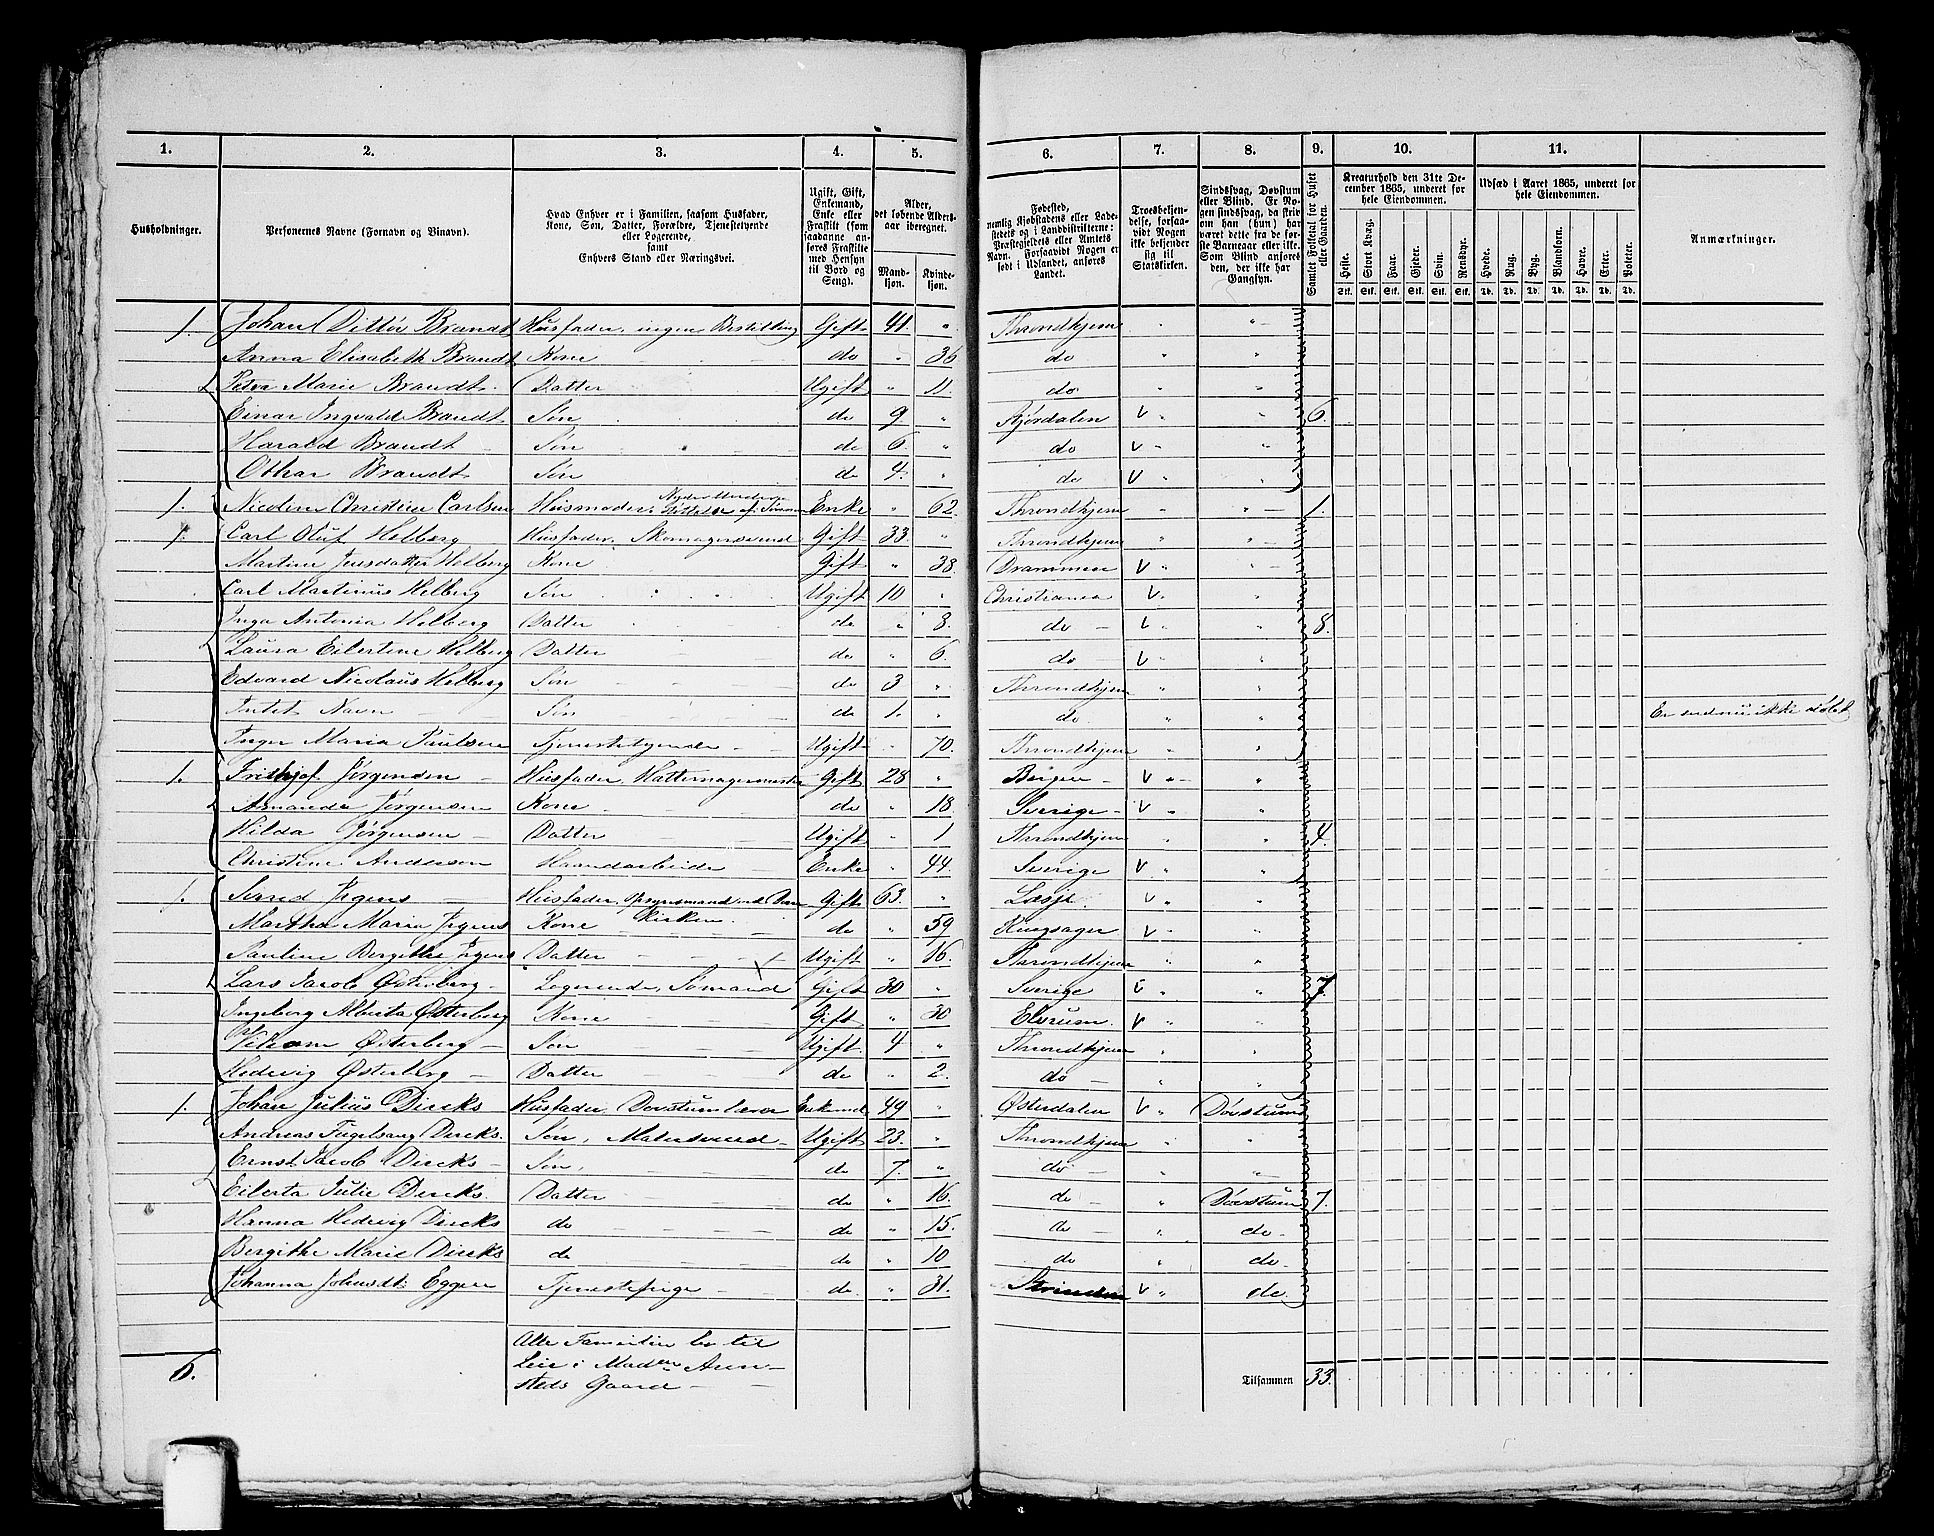 1. 2. 3. 4. 5. 6. 7. 8. 9. 10. 11.
Husholdninger.
Personernes Navne (Fornavn og Vinavn).
Hvad Enhver er i Familien, saasom Husfader,
Kone, Søn, Datter, Forældre, Tjenestetyende
eller Logerende,
samt
Enhvers Stand eller Næringsvei.
Ugift, Gift,
Enkemand,
Enke eller
Fraskilt (som
saadanne an-
føres Fraskilte
med Hensyn
til Bord og
Seng).
Alder,
det løbende Alders-
aar iberegnet.
Mand-
kjøn.
Kvinde-
kjøn.
Fødested,
nemlig Kjøbstadens eller Lade-
stedets og i Landdistrikterne:
Præstegjeldets eller Amtets
Navn. Forsaavidt Nogen er
født i Udlandet, anføres
Landet.
Troesbekjen-
delse, forsaa-
vidt Nogen
ikke bekjender
sig til
Statskirken.
Sindssvag, Døvstum
eller Blind. Er No-
gen sindssvag, da skriv
om han (hun) har
været dette fra de før-
ste Barneaar eller ikke.
Som Blind anføres
den, der ikke har
Gangsyn.
Samlet Folketal for Huset
eller Gaarden.
Kreaturhold den 31te De-
cember 1865, underet for
hele Eiendommen.
Heste. Stort Kvæg. Faar. Gjeder. Svin. Rensdyr.
Stk. Stk. Stk. Stk. Stk. Stk.
Udsæd i Aaret 1865, underet for
hele Eiendommen.
Hvede. Rug. Byg. Blandkorn. Havre. Erter. Poteter.
Td. Td. Td. Td. Td. Td. Td.
Anmærkninger.
1. Johan Ditlev Brandt Husfader, ingen Bestilling Gift 41 " Throndhjem " "
Anna Elisabeth Brandt Kone do " 36 do " "
Petra Marie Brandt Datter Ugift " 11. do " "
Einar Ingvald Brandt Søn do 9. " Stjørdalen V " " 6.
Harald Brandt Søn do 6. " do V " "
Othar Brandt Søn do 4. " do V " "
1. Nicoline Christine Carlsen Husmoder, af Sønnen Enke " 62. Throndhjem " " 1.
1. Carl Oluf Helberg Husfader, Skomagersvend Gift 33. " Throndhjem " "
Martine Jensdatter Helberg Kone Gift " 38. Drammen V " "
Carl Martinus Helberg Søn Ugift 10 " Christiania V " "
Inga Antonia Helberg Datter do " 8. do V " " 8.
Laura Eilertine Helberg Datter do " 6. do V " "
Edvard Nicolaus Helberg Søn do 3 " Throndhjem " "
Intet Navn Søn do 1. " do " " Er endnu ikke døbt
Inger Maria Paulsen Tjenestetyende Ugift " 70. Throndhjem " "
1. Frithjof Jørgensen Husfader, Hattemagermester Gift 28 " Bergen V " "
Amanda Jørgensen Kone do " 18. Sverige V " "
Hilda Jørgensen Datter Ugift " 1 Throndhjem " " 4.
Christine Anderson Haandarbeide Enke " 44. Sverige V " "
1. Sivrid Jrgens Husfader, Opsynsmand ved Dom Gift 63. " Lesje V " "
Martha Maria Jrgens Kone kirken do " 59 Kongsager V " "
Pauline Bergitte Jrgens Datter Ugift " 16. Throndhjem " "
Lars Jacob Østerberg Logerende, Sømand Gift 30 " Sverige V " " 7.
Ingeborg Alberta Østerberg Kone Gift " 30 Elvrum V " "
Østerberg Søn Ugift 4 " Throndhjem " "
Hedevig Østerberg Datter do " 2. do " "
1. Johan Julius Dircks Husfader, Døvstumlærer Enkemd 49 " Østerdalen V " Døvstum
Andreas Fugelsang Dircks Søn, Malersvend Ugift 23. " Throndhjem " "
Ernst Jacob Dircks Søn, do 7. " do " "
Eilerta Julie Dircks Datter do " 16. do " Døvstum 7.
Hanna Hedevig Dircks do do " 15. do " do
Bergithe Marie Dircks do do " 10 do " do
Johanna Johnsdt. Eggen Tjenestepige do " 31. Strinden V " do
6.
Alle Familier bo til
Leie i Madm Aun-
steds Gaard
Tilsammen 33.